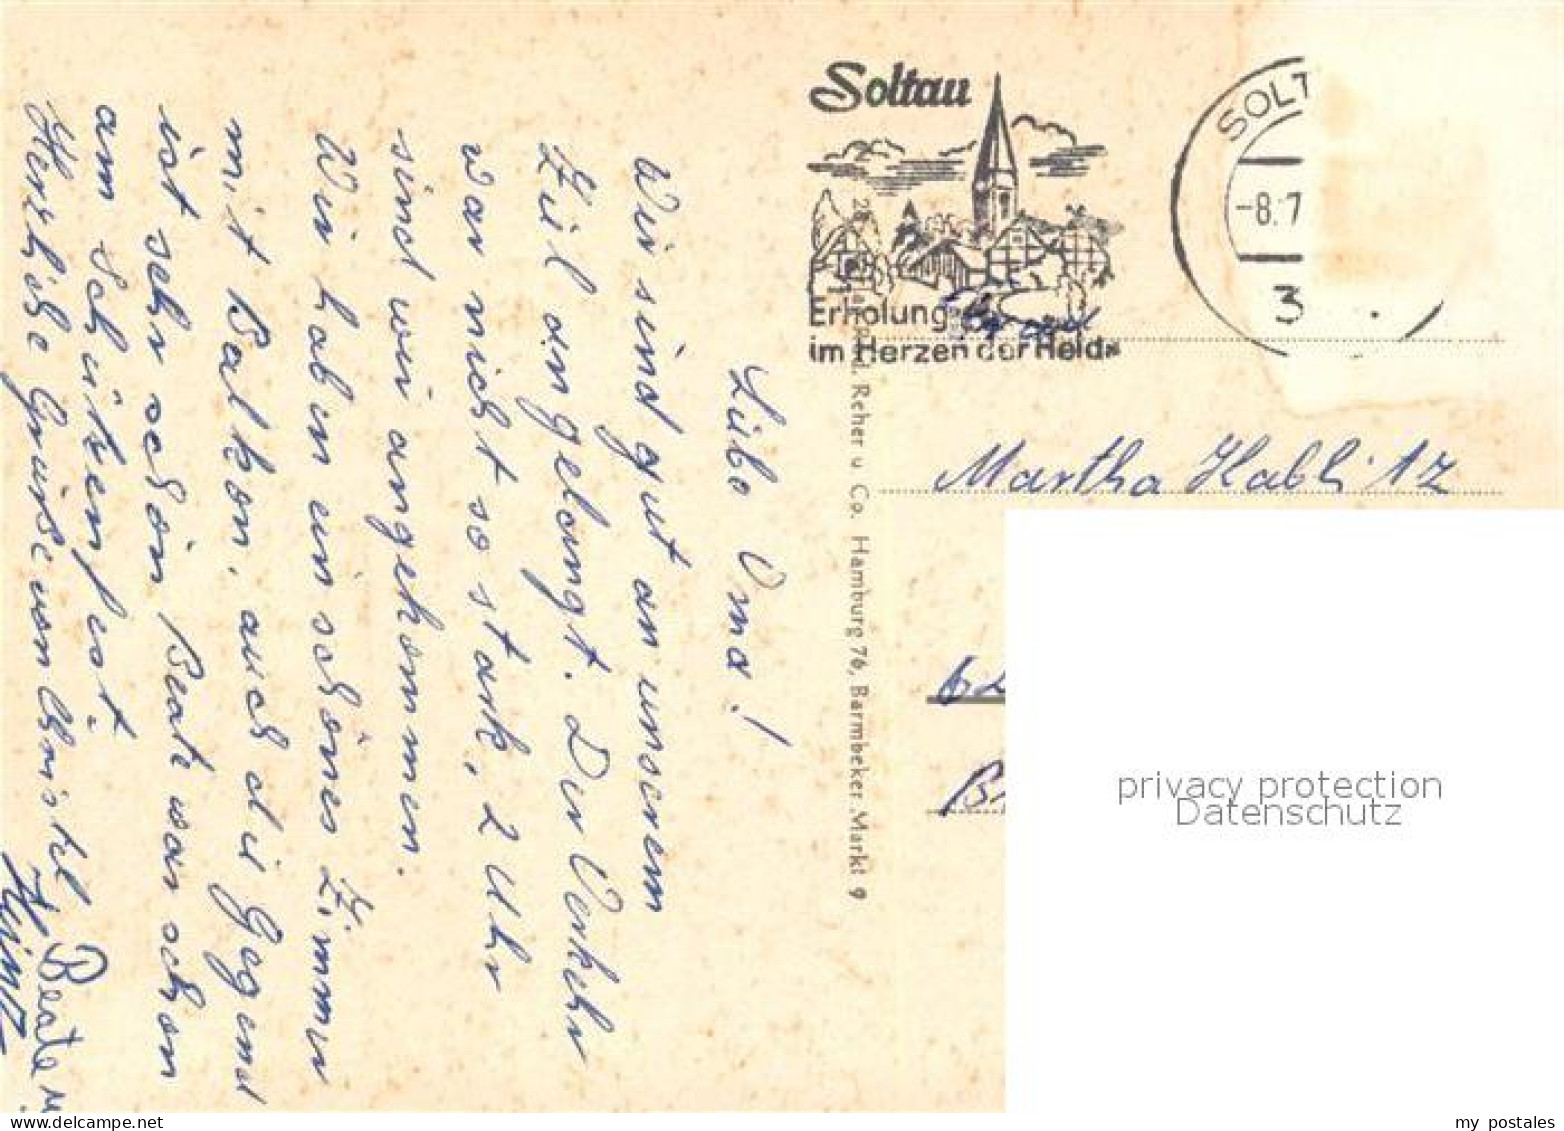 Soltau
Erholung
im Herzen der Heide
SOLT
-8.7
3
Frau
Martha Hablitz
62
Liebe Oma!
Wir sind gut an unserem
Ziel angelangt. Der Verkehr
war nicht so stark, 2 Uhr
sind wir angekommen.
Wir haben ein schönes Zimmer
mit Balkon, auch die Gegend
ist sehr schön Beate war schon
am Schützenfest.
Herzliche Grüße von Christel Beate u.
Reher u. Co. Hamburg 76, Barmbeker Markt 9
privacy protection
Datenschutz
my postales